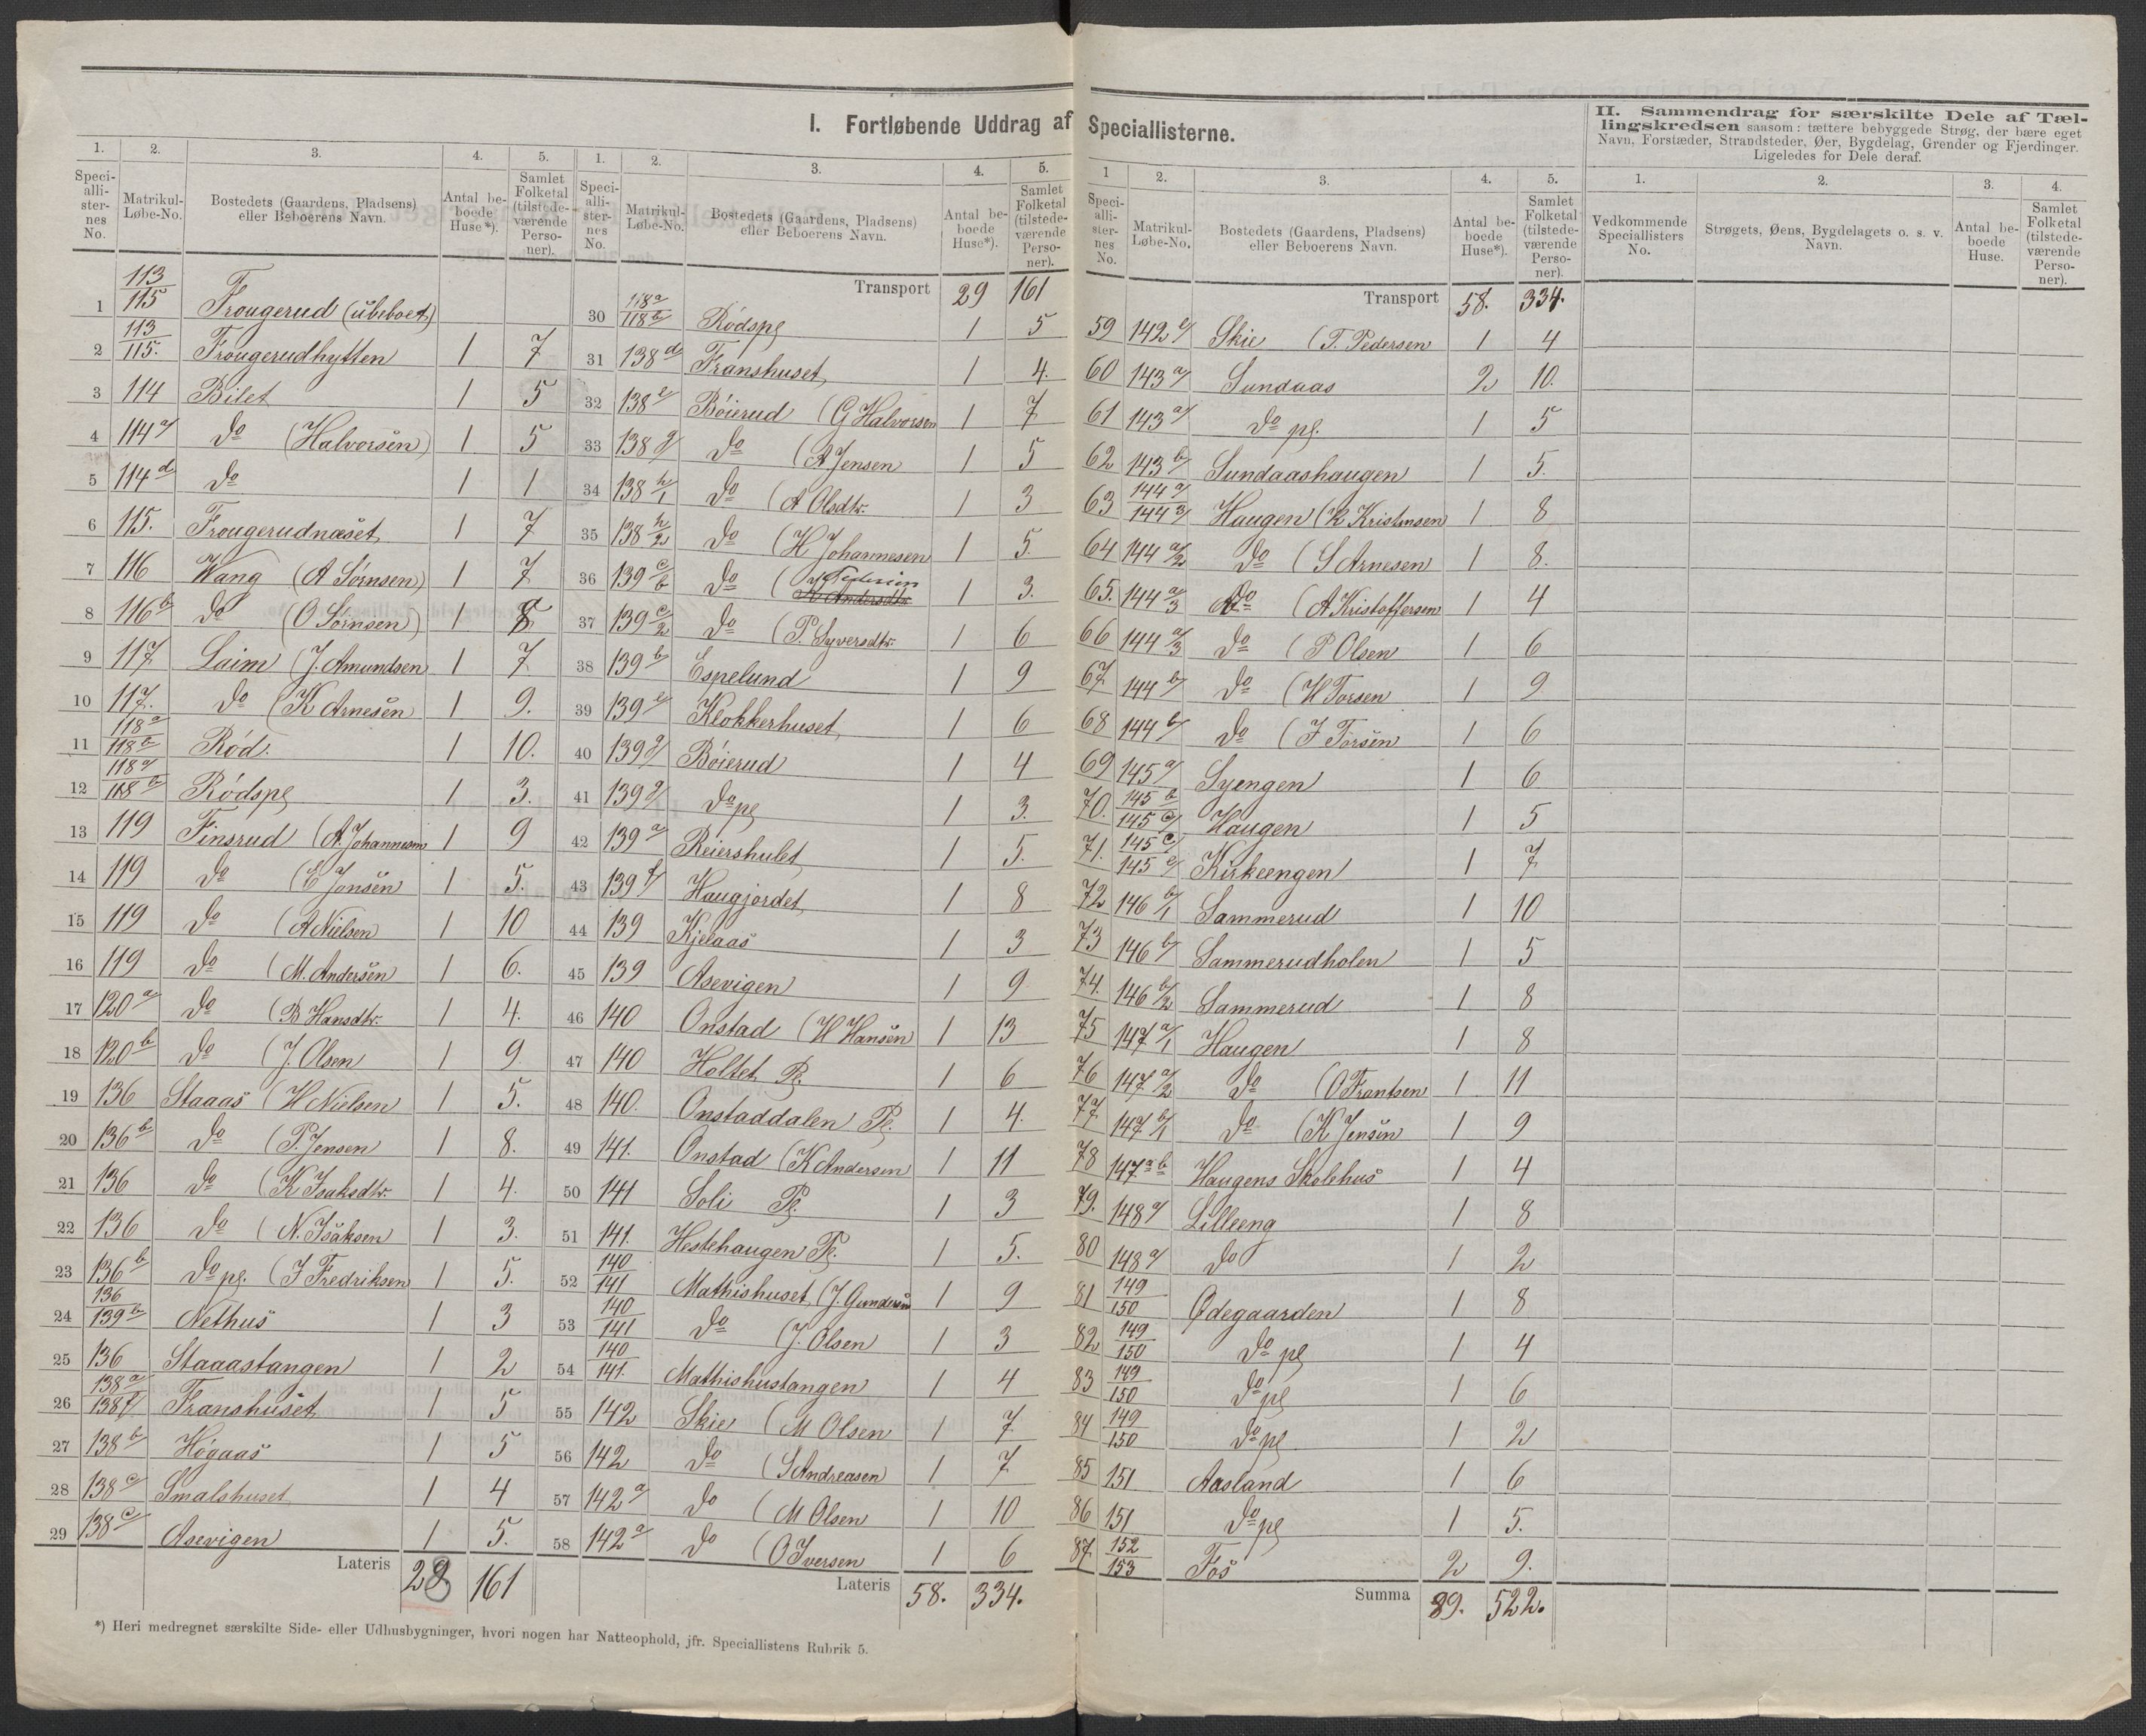 I. Fortløbende Uddrag af Speciallisterne.
1. 2. 3. 4. 5.
Speciallisternes No. Matrikul-Løbe-No. Bostedets (Gaardens, Pladsens) eller Beboerens Navn. Antal beboede Huse*). Samlet Folketal (tilstedeværende Personer).
1 113/115 Frougerud (ubeboet)
2 113/115. Frougerudhytten 1 7
3 114 Bilet 1 5
4 114a do (Halvorsen) 1 5
5 114d do 1 1
6 115. Frougerudnæset 1 7
7 116 Wang (A Sørnsen) 1 7
8 116b do (O Sørnsen) 1
9 117 Laim (J. Amundsen 1 7
10 117. do (K Arnesen 1 9.
11 118a/118c Rød. 1 10.
12 118a/118b Rødspl 1 3.
13 119 Finsrud (A. Johannesen 1 9
14 119 do (E Jonsen 1 5.
15 119 do (A Nielsen 1 10
16 119 do (M. Andersen 1 6.
17 120a do (B Hansdtr. 1 4.
18 120b do (J. Olsen 1 9
19 136 Staaas (H Nielsen 1 5.
20 136b do (P. Jensen 1 8.
21 136 do (K Isaksdtr. 1 4.
22 136 do (N. Isaksen 1 3.
23 136b do pl. (J Fredriksen 1 5.
24 136/139b Nethus 1 3
25 136 Staaastangen 1 2
26 138a/138f Franshuset 1 5
27 138b Høgaas 1 5
28 138c Smalshuset 1 4
29 138c Asevigen 1 5.
Lateris 28 161
*) Heri medregnet særskilte Side- eller Udhusbygninger, hvori nogen har Natteophold, jfr. Speciallistens Rubrik 5.
1. 2. 3. 4. 5.
Speciallisternes No. Matrikul-Løbe-No. Bostedets (Gaardens, Pladsens) eller Beboerens Navn. Antal beboede Huse*). Samlet Folketal (tilstedeværende Personer).
Transport 29 161
30 118a/118b Rødspl 1 5
31 138d Franshuset 1 4.
32 138e Bøierud (G Halvorsen 1 7
33 138g do (A Jensen 1 5
34 138h/1 do (A Olsdtr. 1 3
35 138h/2 do (H Johannesen 1 5.
36 139c/b do ( Pedersen 1 3.
37 139c/2 do (P. Syversdtr. 1 6
38 139b Espelund 1 9
39 139e Klokkerhuset 1 6
40 139g Bøierud 1 4
41 139g do pl 1 3.
42 139a Reiershulet 1 5.
43 139f Haugjordet 1 8
44 139 Kjelaas 1 3
45 139 Asevigen 1 9
46 140 Onstad (H Hansen 1 13
47 140 Holtet Pl. 1 6
48 140. Onstaddalen Pl. 1 4.
49 141. Onstad (K Andersen 1 11
50 141 Soli Pl 1 3
51 141. Hestehaugen Pl. 1 5.
52 140/141 Mathishuset (J. Gundersen 1 9
53 140/141 do (J. Olsen 1 3
54 140/141. Mathishustangen 1 4
55 142 Skie (M Olsen 1 7.
56 142 do (S Andreasen) 1 7
57 142a do (M Olsen 1 10
58 142a do (O Iversen 1 6
Lateris 58. 334.
1 2. 3. 4. 5.
Speciallisternes No. Matrikul-Løbe-No. Bostedets (Gaardens, Pladsens) eller Beboerens Navn. Antal beboede Huse*). Samlet Folketal (tilstedeværende Personer).
Transport 58. 334.
59 142e Skie (T. Pedersen 1 4
60 143a Sundaas 2 10.
61 143a do pl. 1 5
62 143b Sundaashaugen 1 5.
63 144a/144 Haugen (K Kristensen 1 8
64 144a/2 do (S Arnesen 1 8.
65. 144a/3 do (A Kristoffersen 1 4
66 144a/3 do (P Olsen 1 6
67 144b do (H Torsen 1 9
68 144b do (J Torsen 1 6
69 145a Syengen 1 6
70. 145b/145c Haugen 1 5
71. 145c/145e Kirkeengen 1 7
72 146b/1 Sammerud 1 10
73 146b Sammerudholen 1 5
74. 146b/2 Sammerud 1 8
75 147a/1 Haugen 1 8
76 147a/2 do (O Frantsen 1 11
77 147b/1 do (K Jensen 1 9
78 147ab Haugens Skolehus 1 4
79. 148a Lilleeng 1 8
80 148a do 1 2
81 149/150 Ødegaarden 1 8
82 149/150 do pl 1 4
83 149/150 do pl 1 6
84 149/150 do pl 1 2
85 151 Aasland 1 6
86 151 do pl 1 5.
87 152/153 Fos 2 9.
Summa 89. 522.
II. Sammendrag for særskilte Dele af Tællingskredsen saasom: tættere bebyggede Strøg, der bære eget Navn, Forstæder, Strandsteder, Øer, Bygdelag, Grender og Fjerdinger. Ligeledes for Dele deraf.
1. 2. 3. 4.
Vedkommende Speciallisters No. Strøgets, Øens, Bygdelagets o. s. v. Navn. Antal beboede Huse. Samlet Folketal (tilstedeværende Personer).